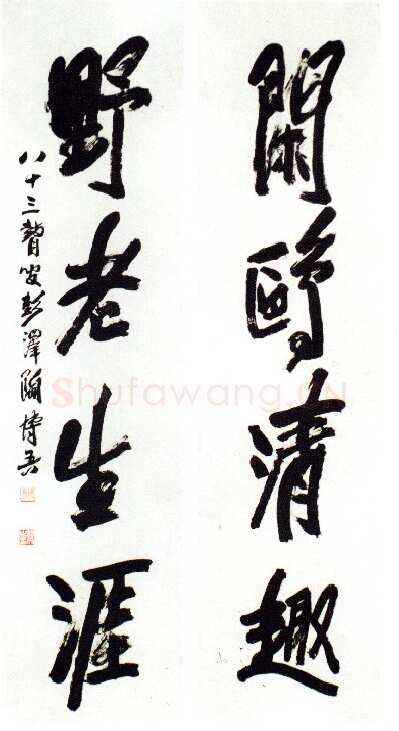 閑鷗清趣
野老生涯
八十三聱叟彭澤陶博吾
Shufawang.CN